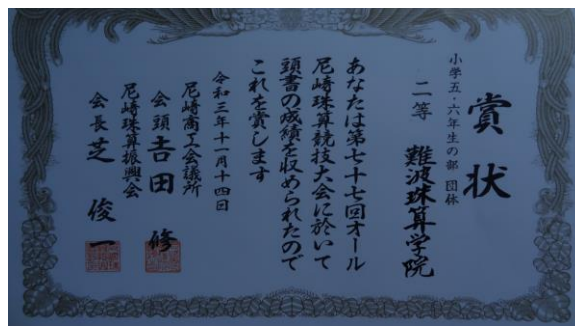 賞状
小学五・六年生の部 団体
二等 難波珠算学院
あなたは第七十七回オール
尼崎珠算競技大会に於いて
頭書の成績を収められたので
これを賞します
令和三年十一月十四日
尼崎商工会議所
会頭 吉田 修
尼崎珠算振興会
会長 芝 俊一